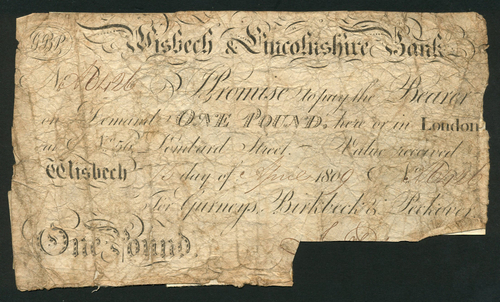 Wisbech & Lincolnshire Bank
No I Promise to pay the Bearer
on Demand ONE POUND, here or in London
at No. 56, Lombard Street. Value received
Wisbech day of April 1809
For Gurneys, Birkbeck & Peckover
One Pound.